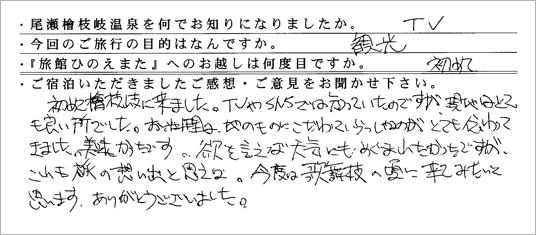 ・尾瀬檜枝岐温泉を何でお知りになりましたか。 TV
・今回のご旅行の目的はなんですか。 観光
・『旅館ひのえまた』へのお越しは何度目ですか。 初めて
・ご宿泊いただきましたご感想・ご意見をお聞かせ下さい。
初めて檜枝岐に来ました。TVやSNSでは知っていたのですが 現地はとて
も良い所でした。お料理は、地のものにこだわっていらっしゃるのが とても伝わって
きました。美味かったです。欲を言えば天気にもめぐまれたかったですが、
これも旅の想い出と思えば。今度は歌舞伎の夏に来てみたいと
思います。ありがとうございました。